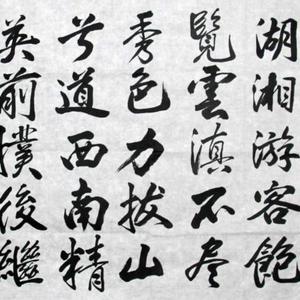 湖湘游客飽
覽雲滇不尽
秀色力拔山
兮道西南精
英前撲後繼